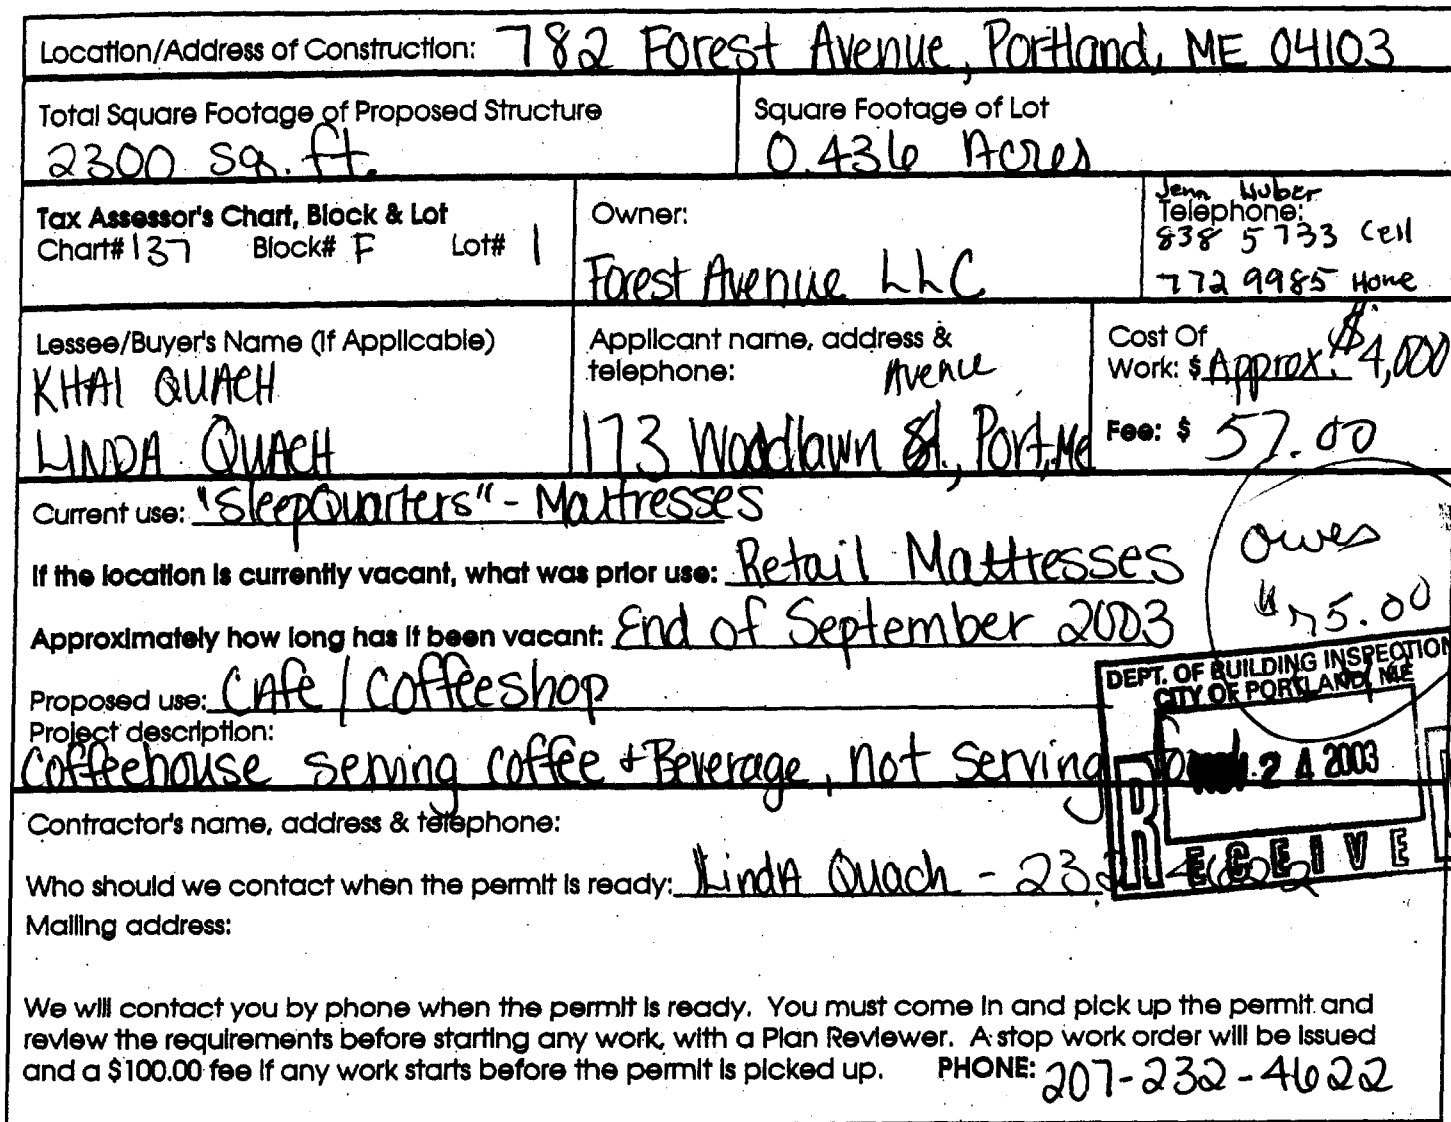 Location/Address of Construction: 782 Forest Avenue, Portland, ME 04103
Total Square Footage of Proposed Structure
2300 sq. ft.
Square Footage of Lot
0.436 Acres
Tax Assessor's Chart, Block & Lot
Chart# 137 Block# F Lot# 1
Owner:
Forest Avenue LLC
Jenn Huber
Telephone:
838 5733 Cell
772 9985 Home
Lessee/Buyer's Name (If Applicable)
KHAI QUACH
LINDA QUACH
Applicant name, address &
telephone: Avenue
173 Woodlawn St., Port, Me
Cost Of
Work: $ Approx. $4,000
Fee: $ 57.00
Current use: "SleepQuarters" - Mattresses
If the location is currently vacant, what was prior use: Retail Mattresses
owes
$75.00
Approximately how long has it been vacant: End of September 2003
Proposed use: Cafe / Coffeeshop
Project description:
Coffeehouse serving coffee + Beverage, not serving
DEPT. OF BUILDING INSPECTION
CITY OF PORTLAND, ME
24 2003
RECEIVE
Contractor's name, address & telephone:
Who should we contact when the permit is ready: Linda Quach - 232 4622
Mailing address:
We will contact you by phone when the permit is ready. You must come in and pick up the permit and
review the requirements before starting any work, with a Plan Reviewer. A stop work order will be issued
and a $100.00 fee if any work starts before the permit is picked up. PHONE: 207-232-4622